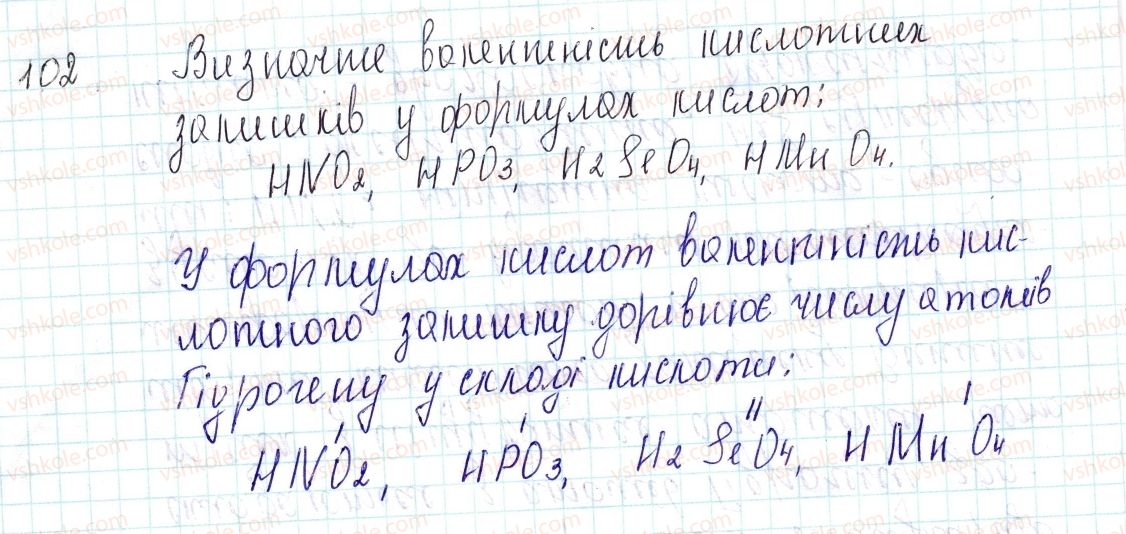 102 Визначте валентність кислотних
залишків у формулах кислот:
HNO2, HPO3, H2SeO4, HMnO4.
У формулах кислот валентність кис-
лотного залишку дорівнює числу атомів
Гідрогену у складі кислоти:
I I II I
HNO2, HPO3, H2SeO4, HMnO4